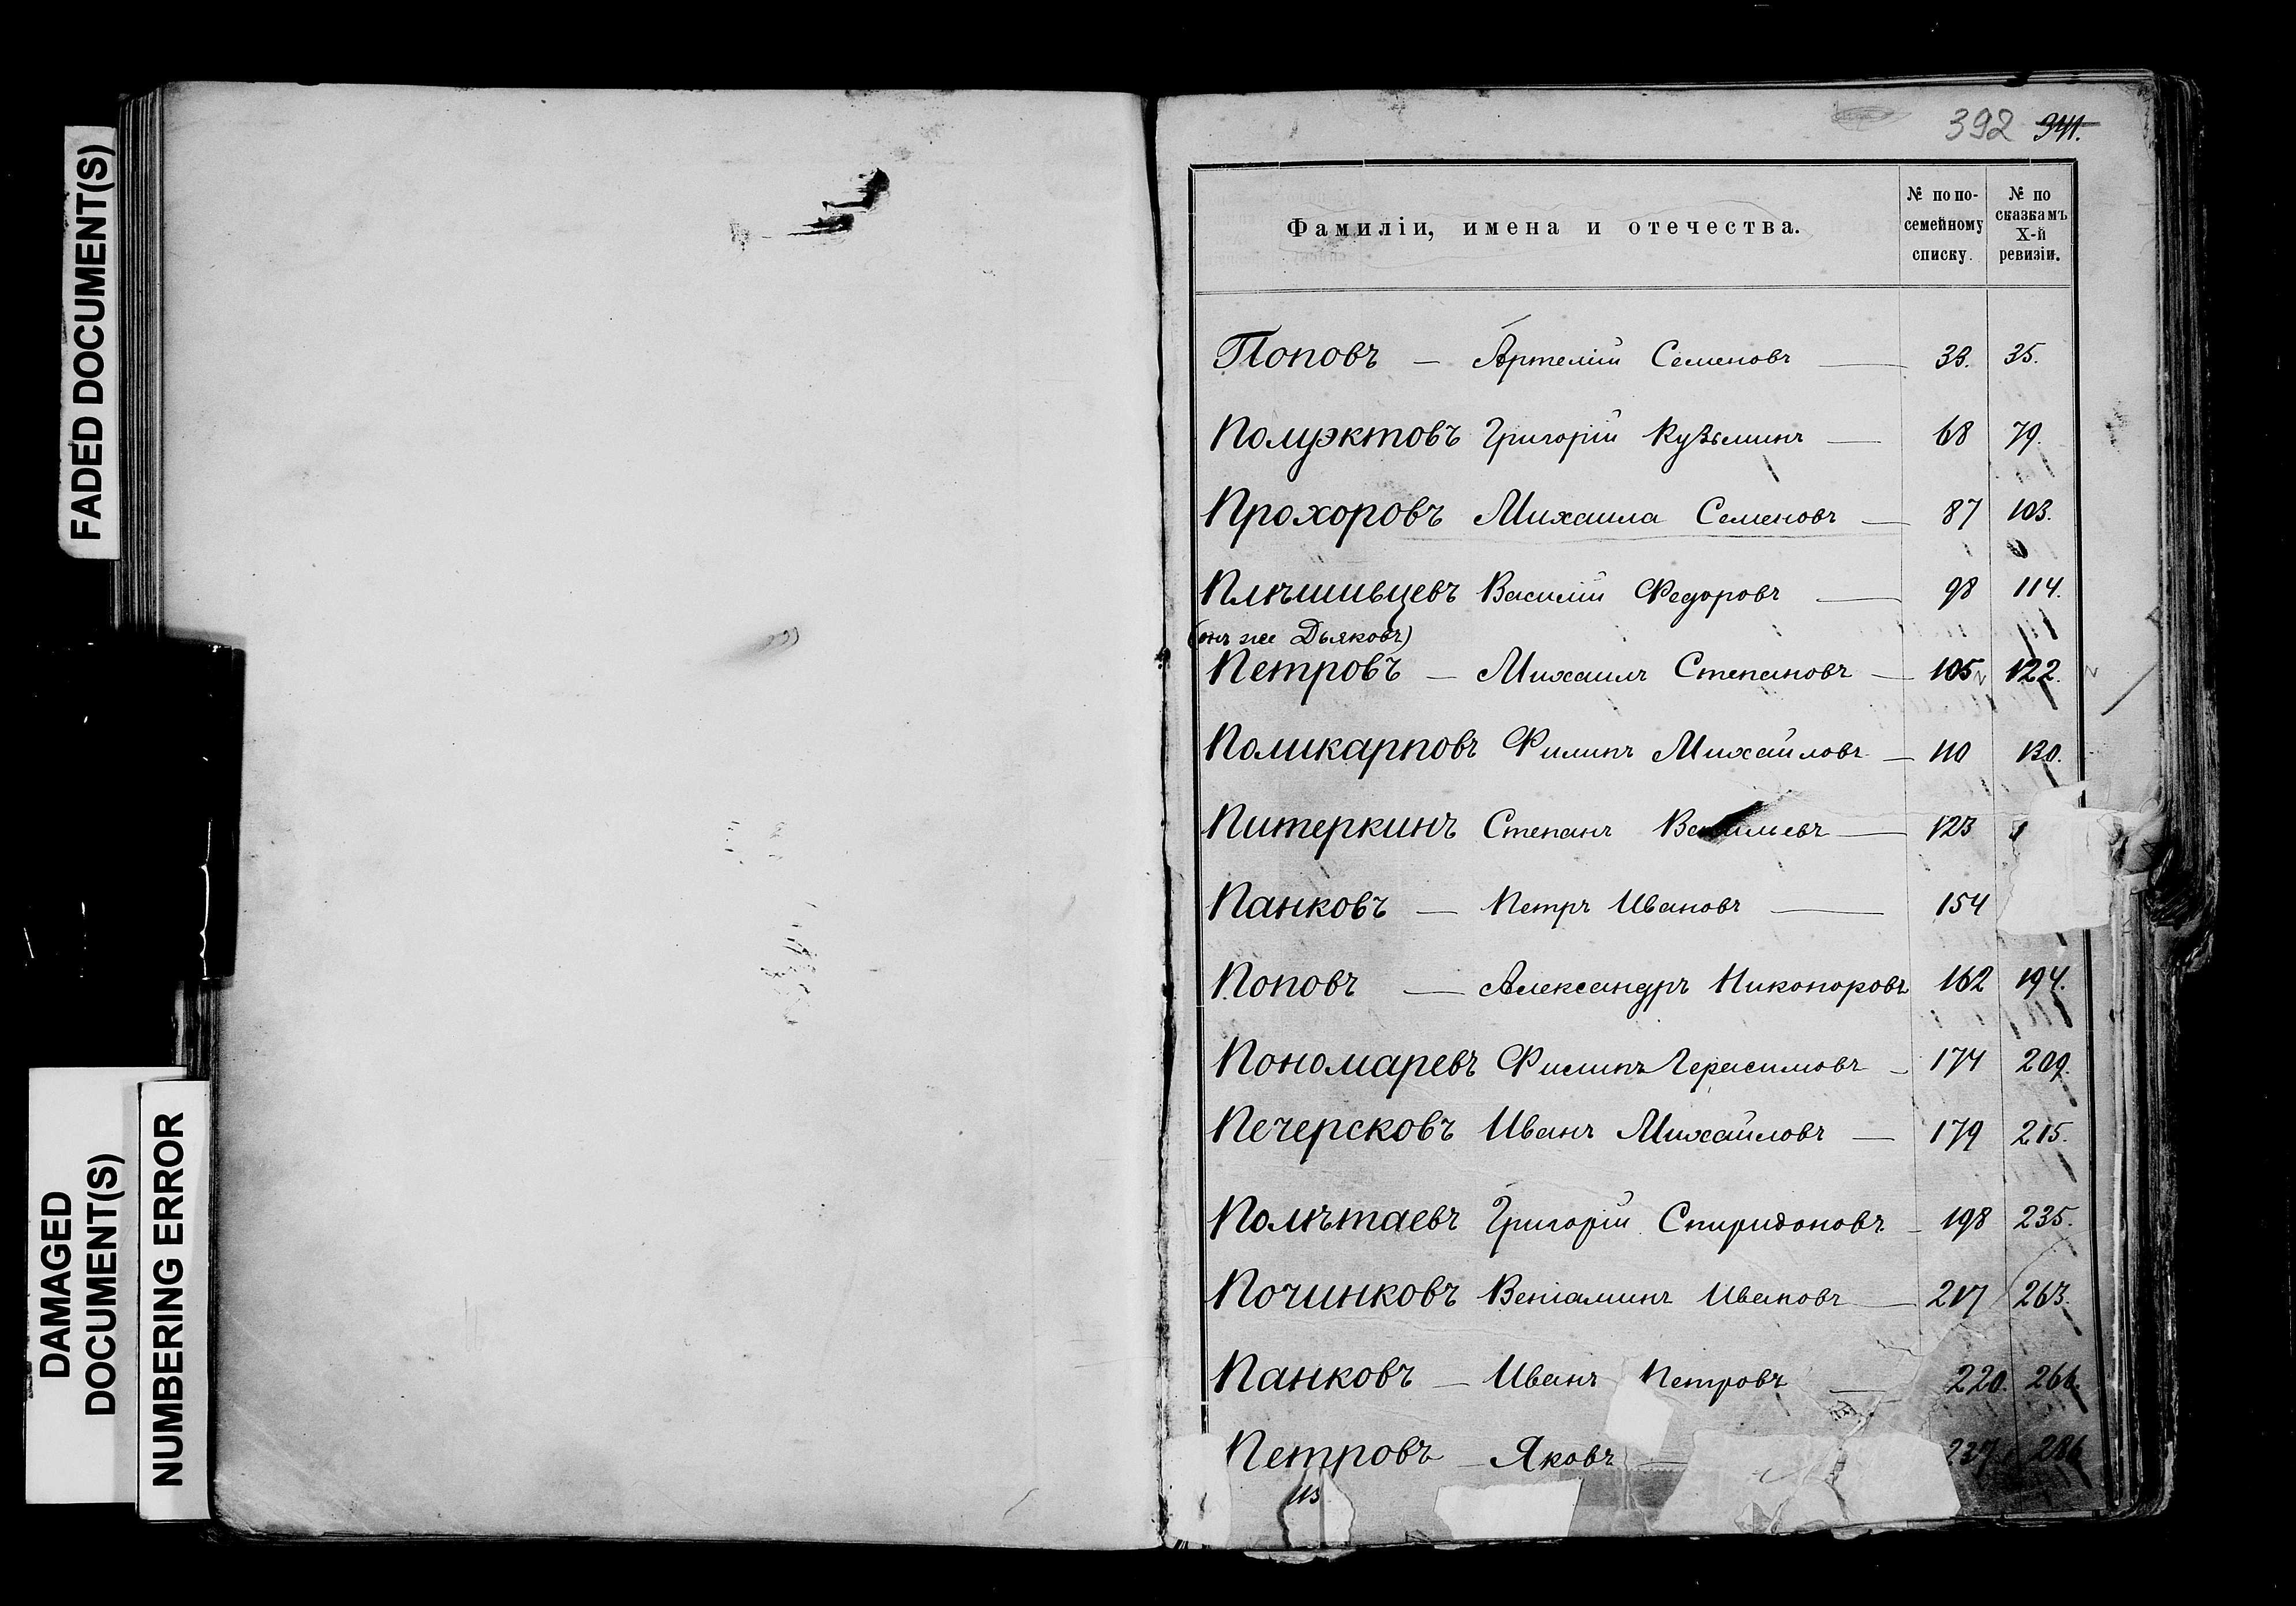 FADED DOCUMENT(S)
DAMAGED
DOCUMENT(S)
NUMBERING ERROR
392 341.
Фамиліи, имена и отечества.
№ по по-
семейному
списку.
№ по
сказкамъ
X-й
ревизіи.
Поповъ — Артемій Семеновъ — 33. 35.
Полуэктовъ Григорій Кузьминъ — 68 79.
Прохоровъ Михаила Семеновъ — 87 103.
Плѣшивцевъ Василій Федоровъ — 98 114.
(онъ же Дьяковъ)
Петровъ — Михаилъ Степановъ — 105 122.
Поликарповъ Филипъ Михайловъ — 110 130.
Питеркинъ Степанъ Васильевъ — 123 1
Панковъ — Петръ Ивановъ — 154
Поповъ — Александръ Никоноровъ 162 194.
Пономаревъ Филипъ Герасимовъ - 174 209.
Печерсковъ Иванъ Михайловъ — 179 215.
Полѣтаевъ Григорій Спиридоновъ - 198 235.
Починковъ Веніаминъ Ивановъ — 217 263.
Панковъ — Иванъ Петровъ — 220. 266.
Петровъ — Яковъ — 237 286